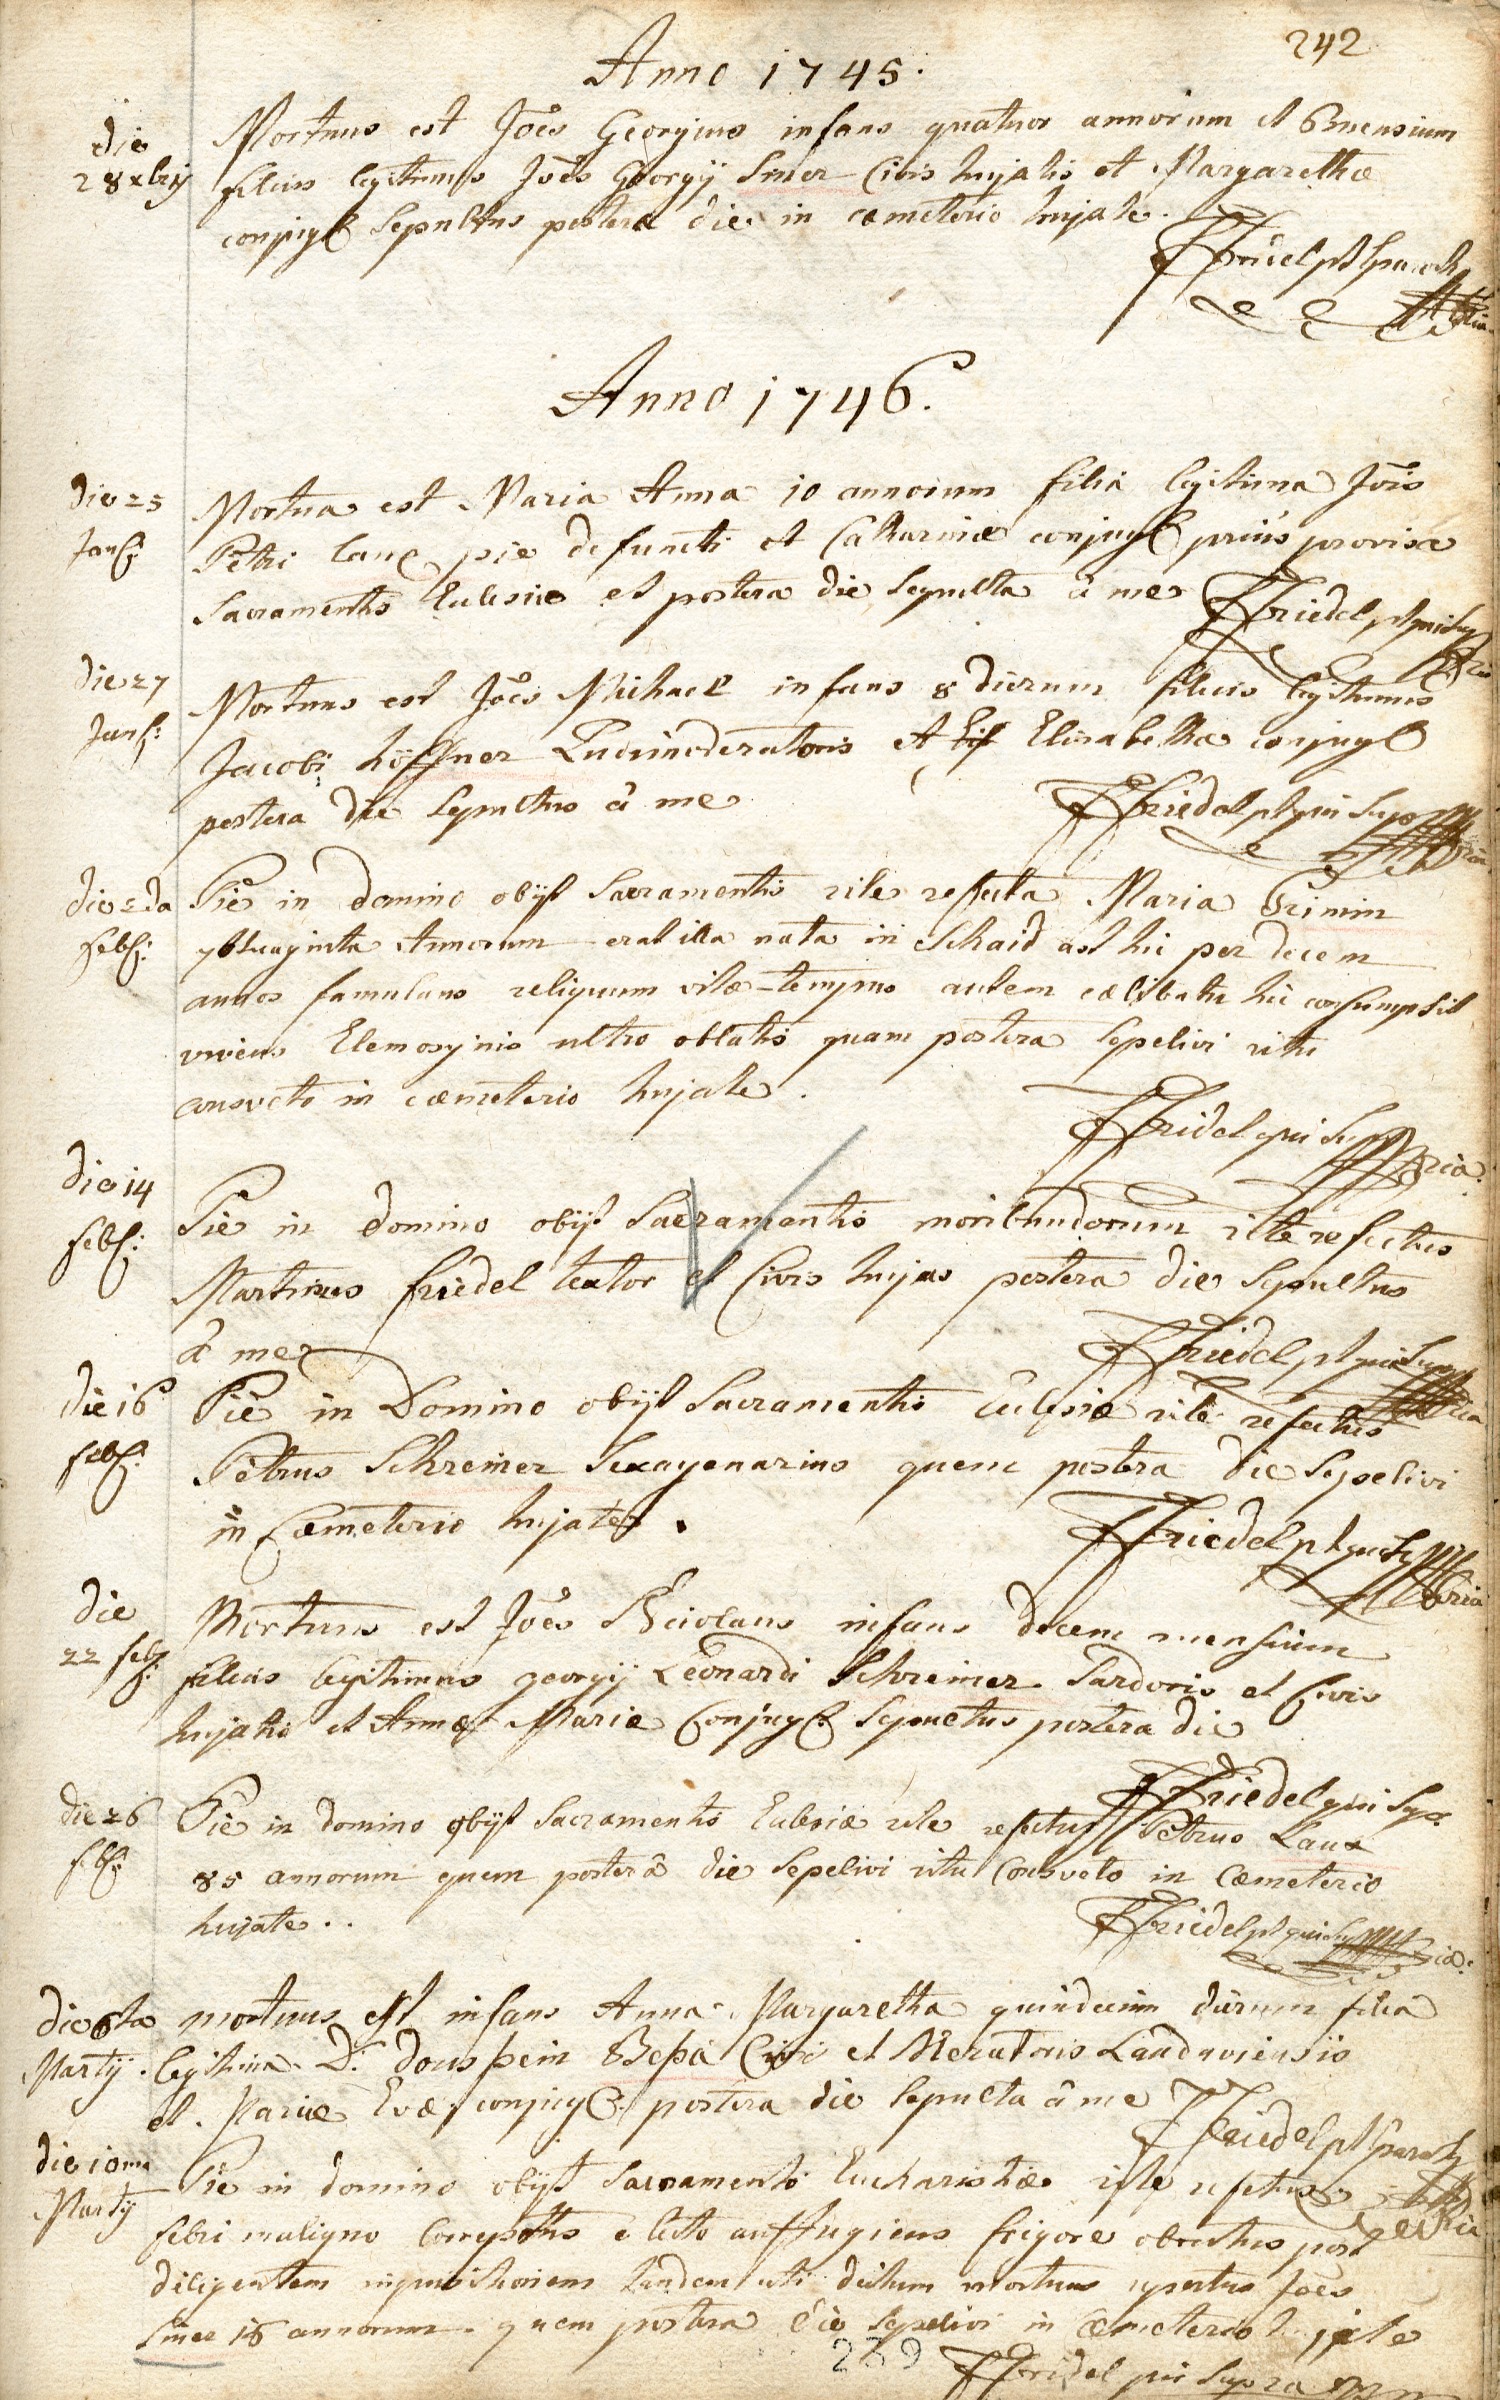 242
Anno 1745.
die
28 xbrij
Mortuus est Joẽs Georgius infans quatuor annorum et 6 mensium
filius legitimus Joẽs Georgij Smer Civis hujatis et Margarethæ
conjug. Sepultus postera die in cæmeterio hujate.
Friedel pt parochg
Anno 1746.
die 25
Jan:
Mortua est Maria Anna 10 annorum filia legitima Jõis
Petri Laux pie defuncti et Catharinæ conjug. prius provisa
Sacramentis Ecclesiæ et postera die sepulta â me
Friedel pt qui Sup
die 27
Jan:
Mortuus est Joẽs Michael infans 8 dierum filius legitimus
Jacobi höffner Ludimoderatoris et Elisabethæ conjug.
postera die sepultus â me
Friedel pt qui Supr
die 2da
feb:
Pie in domino obijt Sacramentis rite refecta Maria
Annorum erat illa nata in Schaid ast hic per decem
annos famulans reliquum vitæ tempus autem cælibatu hic consumpsit
vivens Elemosynis ultro oblatis quam postera sepelivi ritu
consveto in cæmeterio hujate.
Fridel qui Sup
die 14
feb:
Pie in domino obijt Sacramentis moribundorum rite refectus
Martinus friedel textor et Civis hujas postera die sepultus
â me
Friedel pt qui Sup
die 16
feb:
Pie in Domino obijt Sacramentis Ecclesiæ rite refectus
Petrus Schreiner Sexagenarius quem postera die sepelivi
in Cæmeterio hujate.
Friedel pt qui S
die
22 feb:
Mortuus est Joẽs Nicolaus infans decem mensium
filius legitimus georgij Leonardi Schreiner Sardoris et Civis
hujatis et Annæ Mariæ Conjug. Sepultus postera die
Friedel qui Sup
die 26
feb:
Pie in domino obijt Sacramentis Ecclesiæ rite refectus Petrus Laux
85 annorum quem posterâ die Sepelivi ritu Consveto in Cæmeterio
hujate..
Friedel pt qui Sup
die 6ta
Martij.
mortuus est infans Anna Margaretha quindecim dierum filia
legitima D. et Mercatoris Landaviensis
et Mariæ Evæ conjug. postera die sepulta â me
Friedel pt paroch
die 10ma
Martij
Pie in domino obijt Sacramento Eucharistiæ rite refectus
febri maligno correptus e lecto auffugiens frigore obrutus post
diligentem inquisitionem tandem uti dictum mortuus repertus Joẽs
Smer 18 annorum quem postera die sepelivi in Cæmeterio hujate
239
Fridel qui Supra